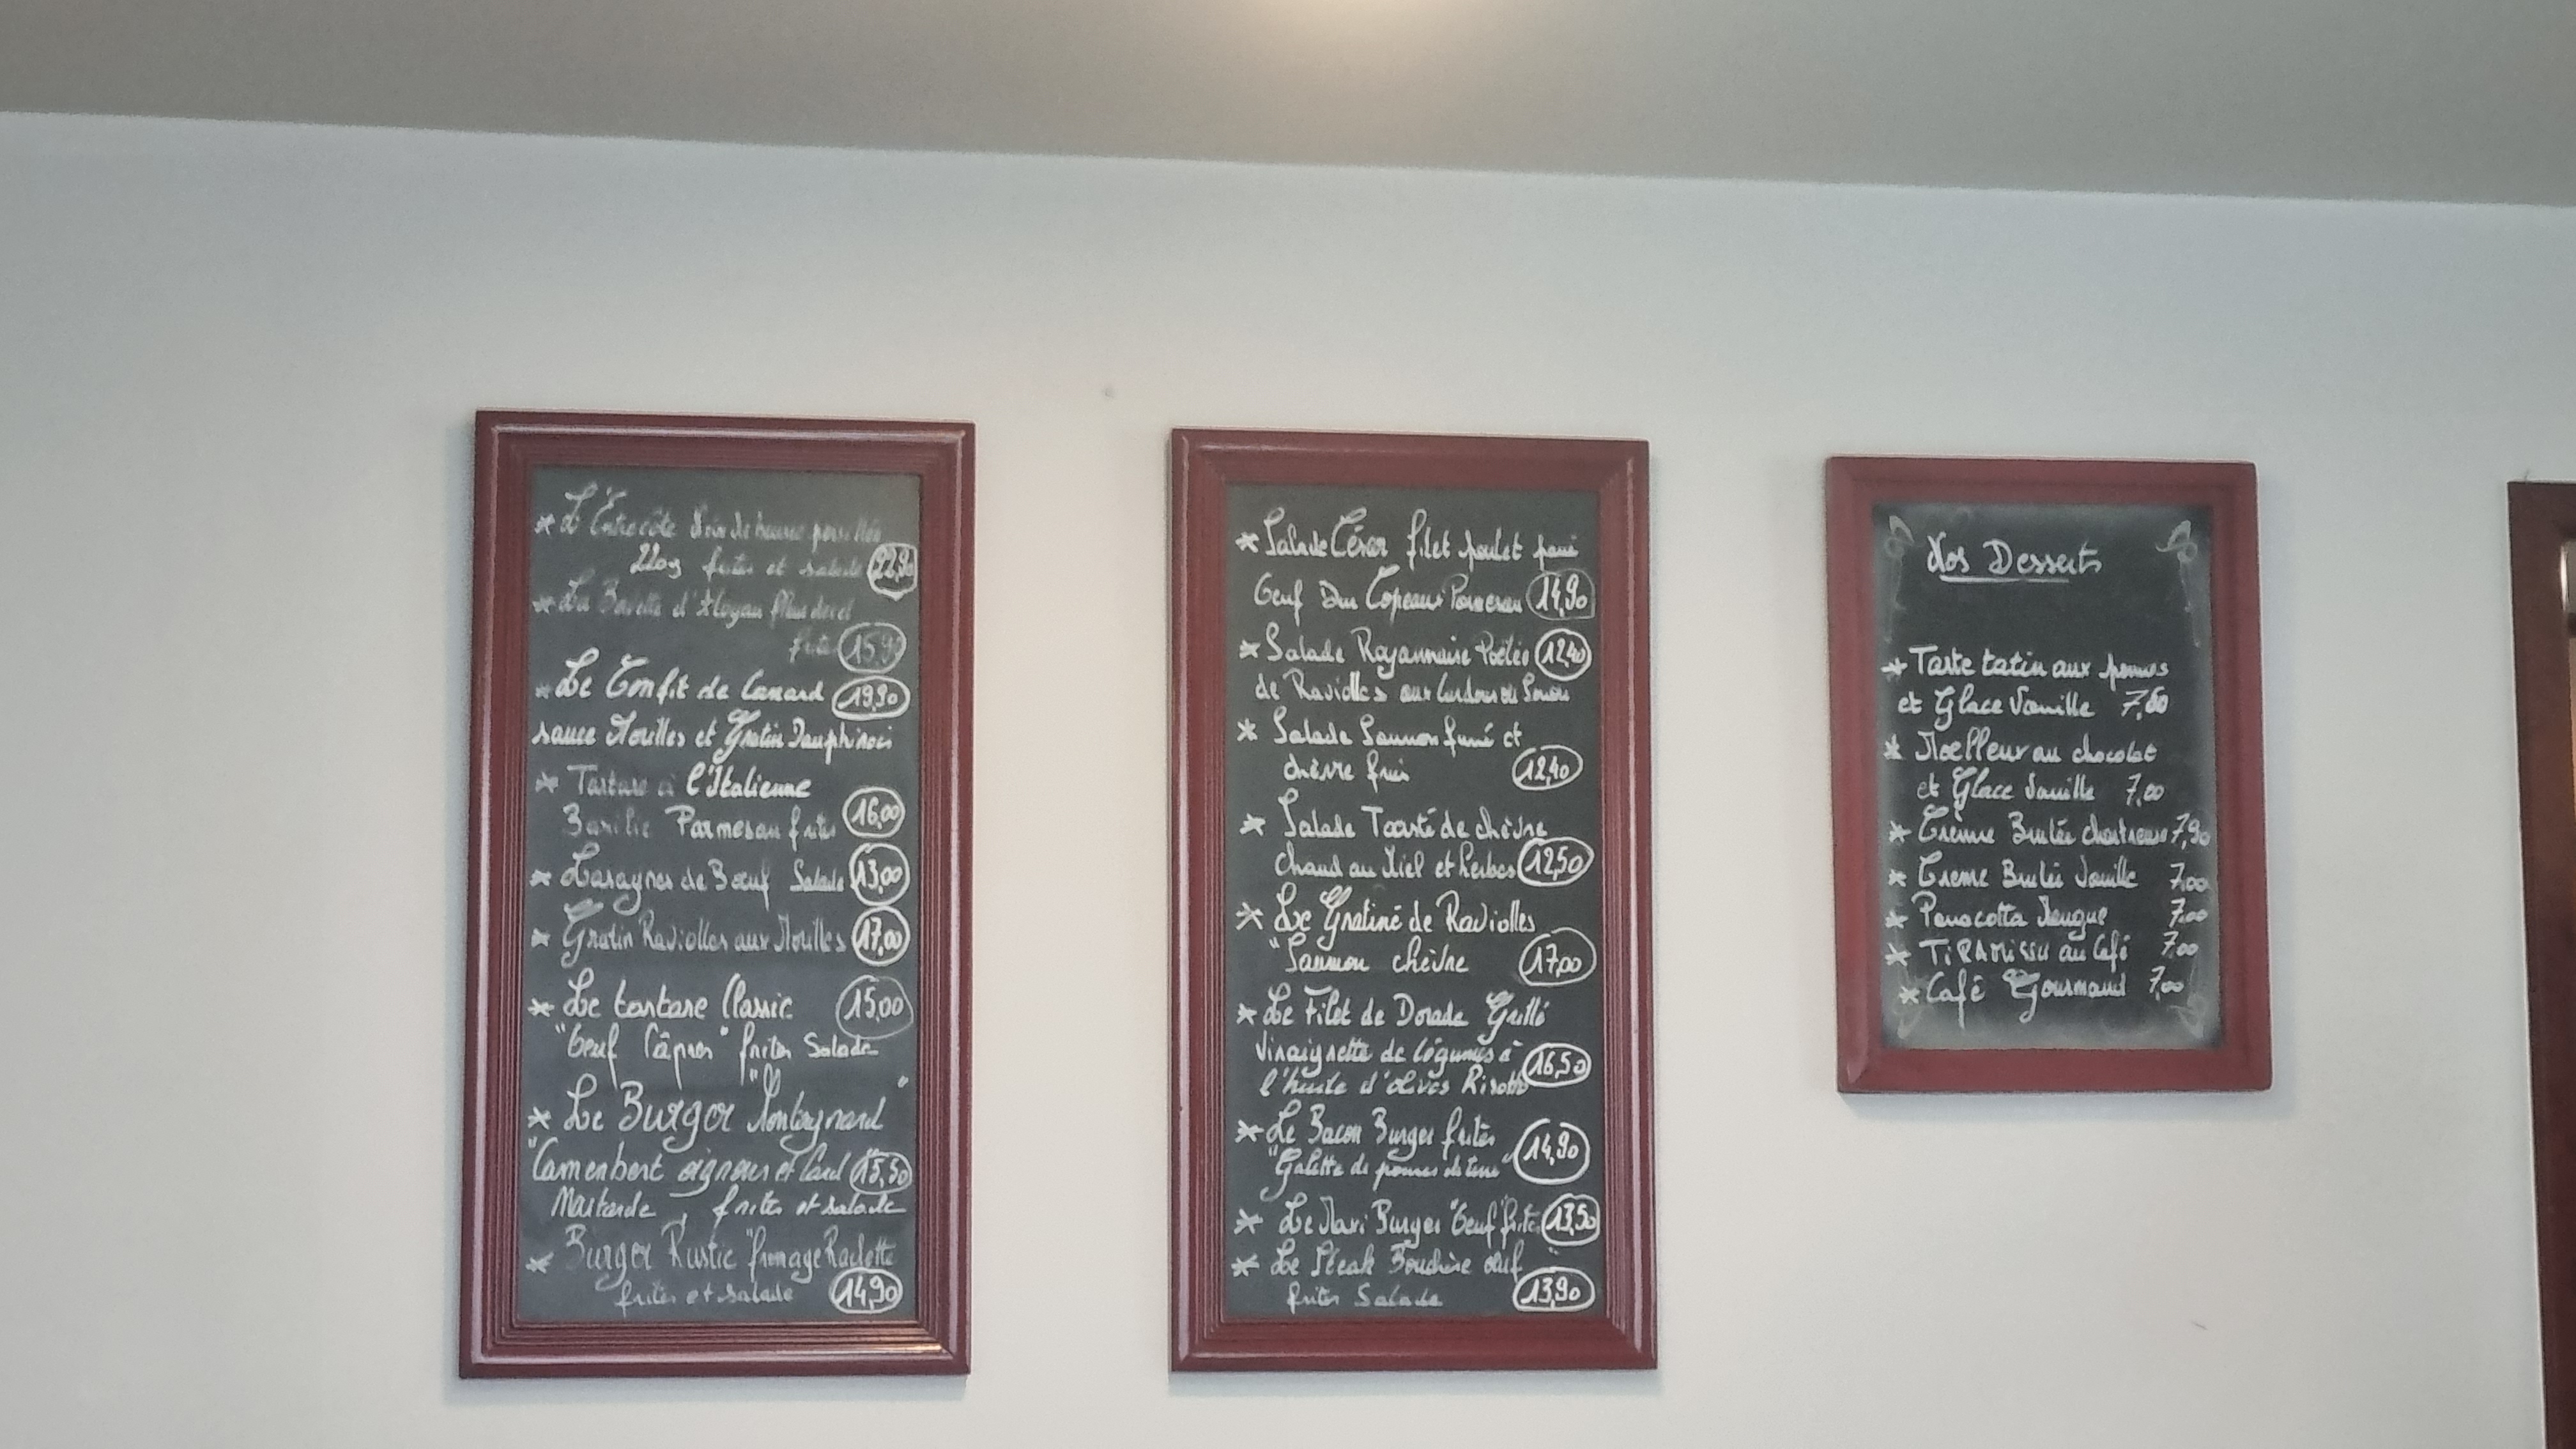 * L'Entrecôte
220g frites et salade 22,90
* La Bavette d'Aloyau
frites 15,90
* Le Confit de Canard 19,90
sauce Morilles et Gratin Dauphinois
* Tartare à l'Italienne
Basilic Parmesan frites 16,00
* Lasagnes de Bœuf Salade 13,00
* Gratin Ravioles aux Morilles 17,00
* Le tartare Classic 15,00
"Oeuf Câpres" frites Salade
* Le Burger "Montagnard"
"Camembert oignons et Lard 15,50
Moutarde, frites et salade
* Burger Rustic "fromage Raclette
frites et salade 14,90
* Salade César filet poulet pané
Oeuf Dur Copeaux Parmesan 14,90
* Salade Royannaise Poêlée 12,40
de Ravioles aux
* Salade Saumon fumé et
chèvre frais 12,40
* Salade Toasté de chèvre
chaud au Miel et herbes 12,50
* Le Gratiné de Ravioles
"Saumon chèvre 17,00
* Le Filet de Dorade Grillé
Vinaigrette de légumes à 16,50
l'huile d'olives Risotto
* Le Bacon Burger frites 14,90
"Galette de pommes de terre"
* Le Maxi Burger "Oeuf" frites 13,50
* Le Steak Bouchère œuf
frites Salade 13,90
Nos Desserts
* Tarte tatin aux pommes
et Glace Vanille 7,60
* Moelleux au chocolat
et Glace Vanille 7,00
* Crème Brulée chartreuse 7,90
* Creme Brulée Vanille 7,00
* Panacotta Mangue 7,00
* TiRAMissu au Café 7,00
* Café Gourmand 7,00